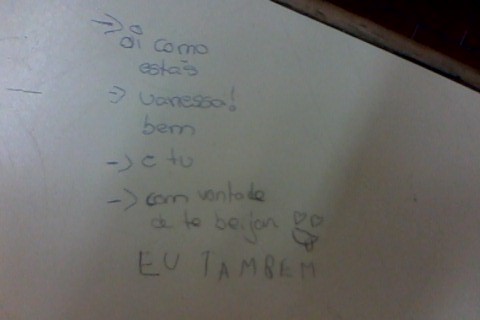 -> ó
oi como
estás
-> vanessa!
bem
-> e tu
-> com vontade
de te beijar
EU TAMBEM